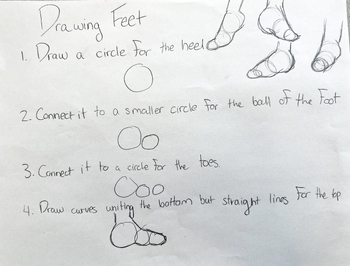 Drawing Feet
1. Draw a circle for the heel
2. Connect it to a smaller circle for the ball of the foot
3. Connect it to a circle for the toes.
4. Draw curves uniting the bottom but straight lines for the top